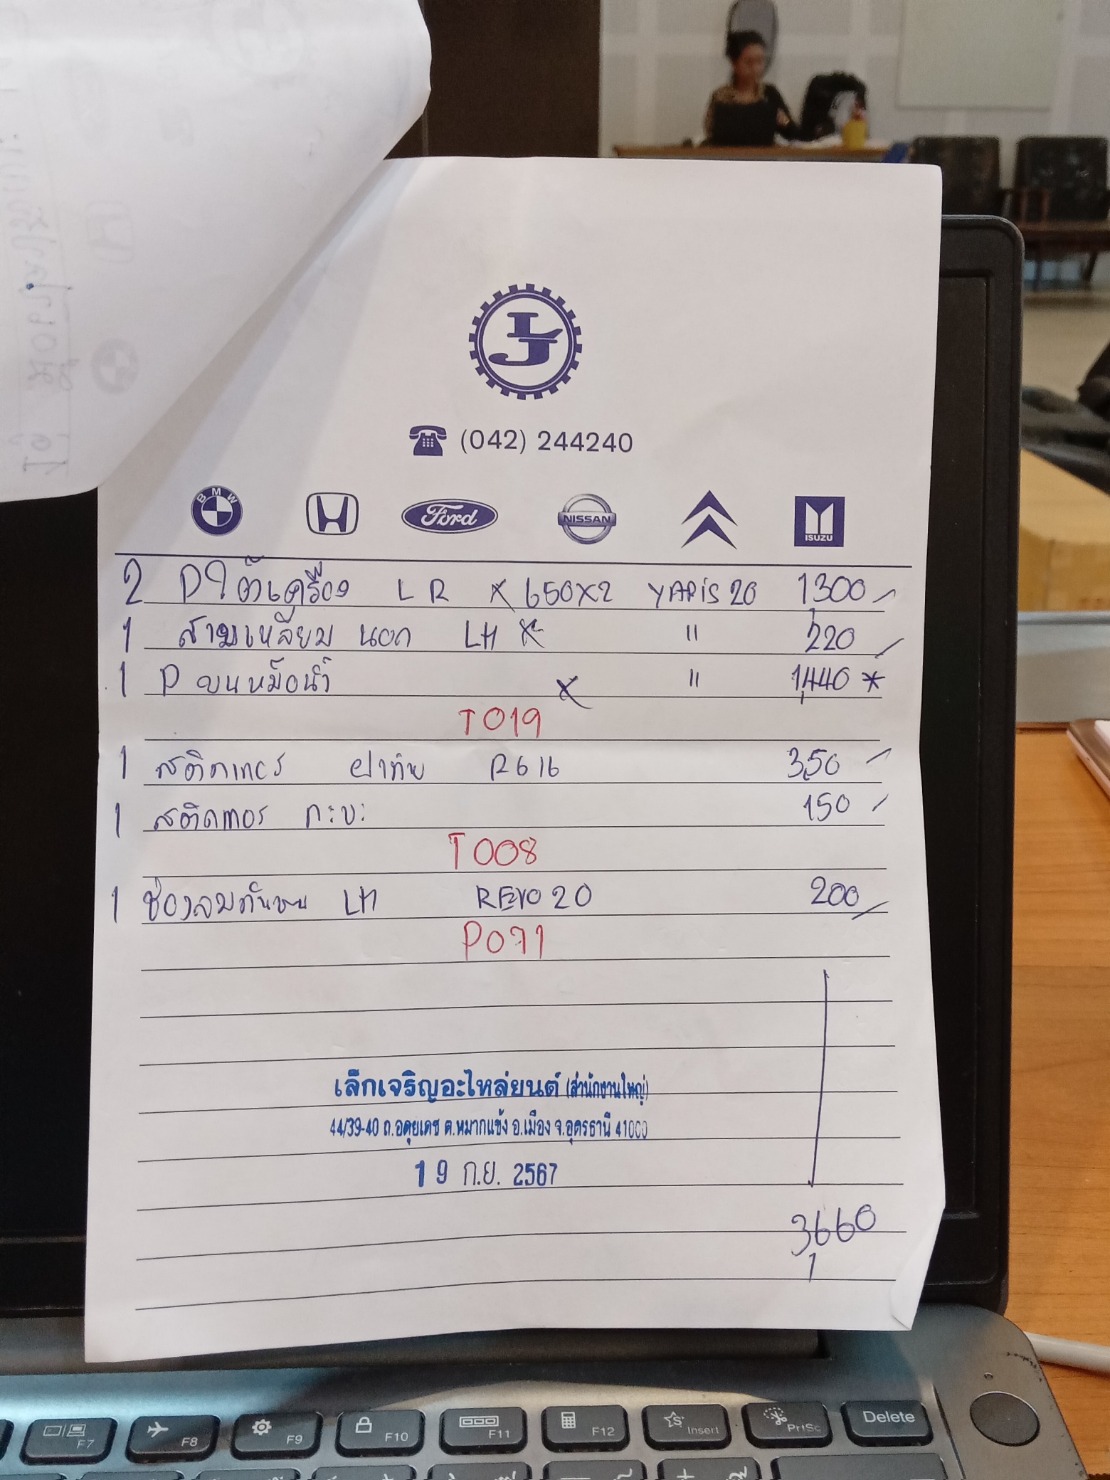 LJ
(042) 244240
BMW H Ford NISSAN ISUZU
2 Pใต้เครื่อง L R x 650x2 YARIS 20 1,300
1 สามเหลี่ยม นอก LH x " 220
1 P บนหม้อน้ำ x " 1,440 *
T019
1 สติกเกอร์ ฝาท้าย R616 350
1 สติกเกอร์ กะบะ 150
T008
1 ช่องลมกันชน LH REVO 20 200
P071
เล็กเจริญอะไหล่ยนต์ (สำนักงานใหญ่)
44/39-40 ถ.อดุยเดช ต.หมากแข้ง อ.เมือง จ.อุดรธานี 41000
19 ก.ย. 2567
3,660
F7 F8 F9 F10 F11 F12 Insert PrtSc Delete